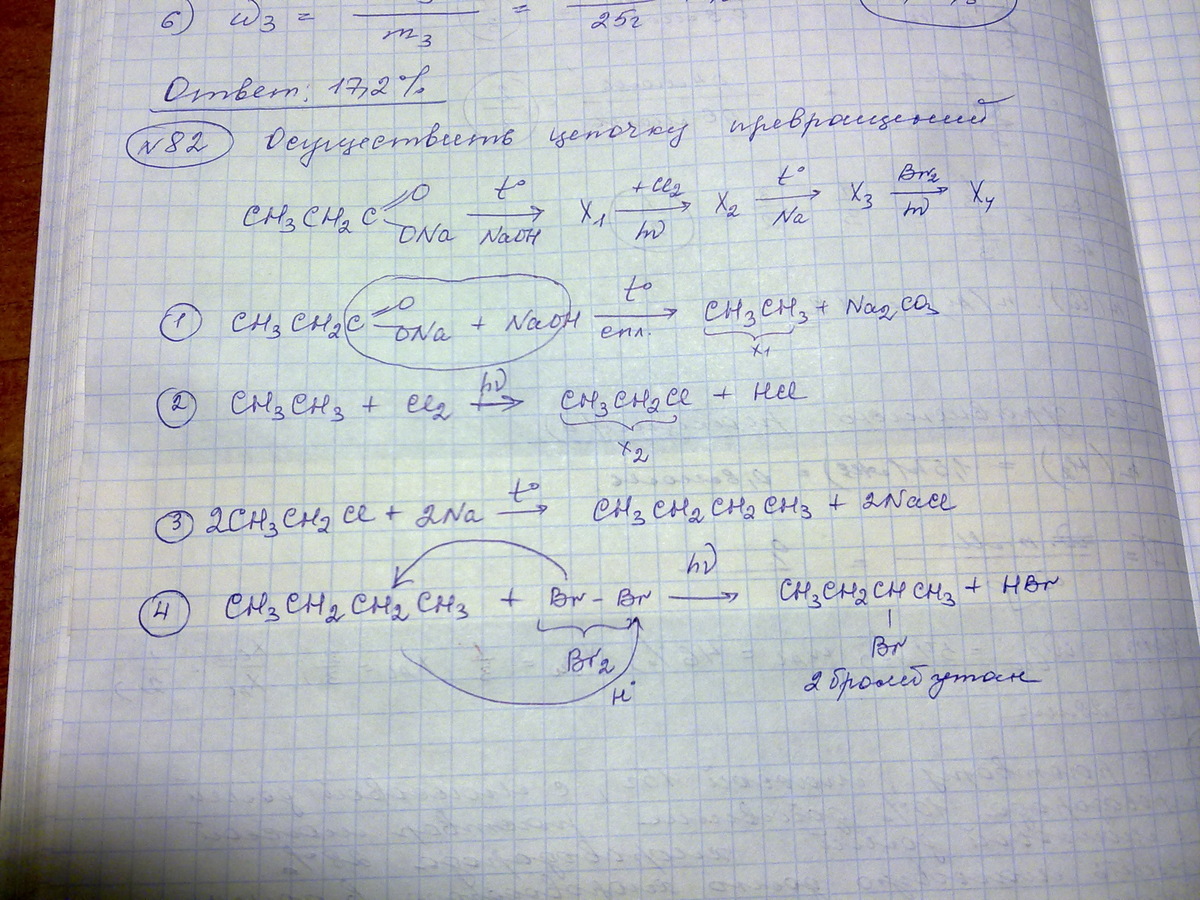 6) ω₃ = ― = ―
m₃ 25г
Ответ: 17,2%
N82 Осуществить цепочку превращений
CH₃CH₂C(=O)ONa —t°/NaOH→ X₁ —+Cl₂/hν→ X₂ —t°/Na→ X₃ —Br₂/hν→ X₄
1 CH₃CH₂C(=O)ONa + NaOH —t°/спл.→ CH₃CH₃ + Na₂CO₃
X₁
2 CH₃CH₃ + Cl₂ —hν→ CH₃CH₂Cl + HCl
X₂
3 2CH₃CH₂Cl + 2Na —t°→ CH₃CH₂CH₂CH₃ + 2NaCl
4 CH₃CH₂CH₂CH₃ + Br – Br —hν→ CH₃CH₂CHCH₃ + HBr
Br₂ Br
H· 2 бромбутан